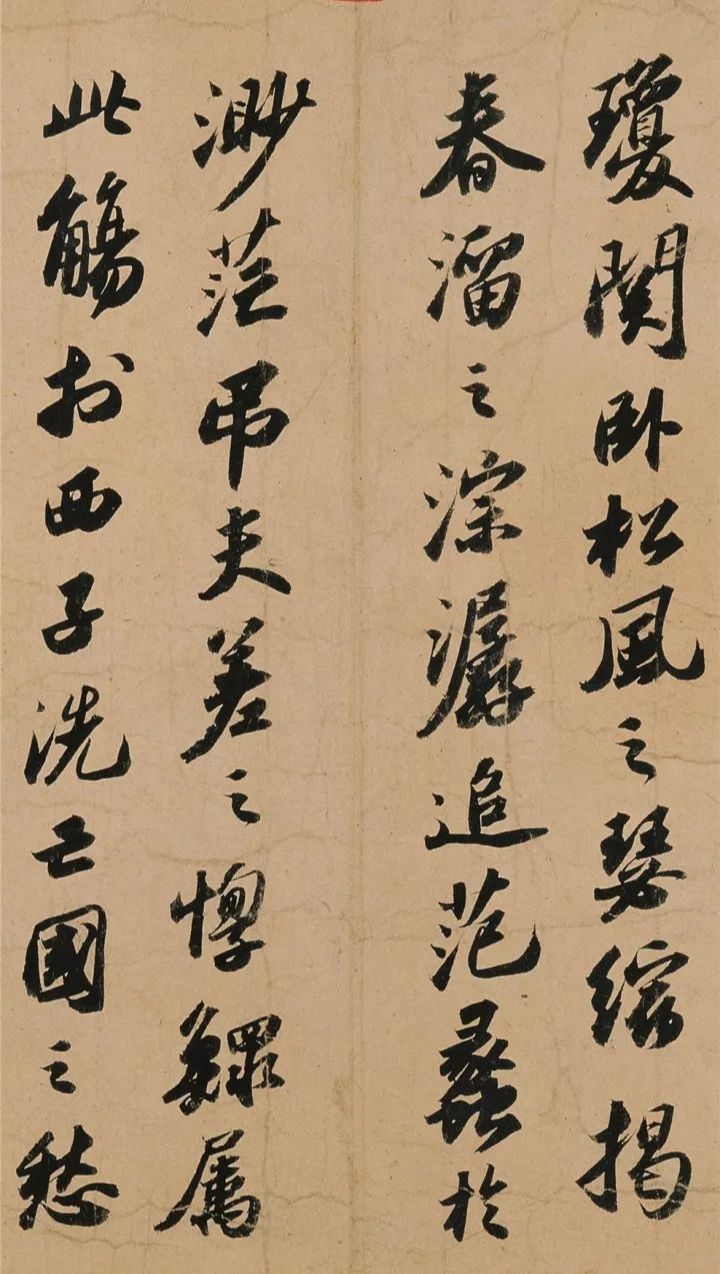 瓊關卧松風之瑟縮揭
春溜之淙潺追范蠡於
渺茫吊夫差之惸鰥属
此觴於西子洗亡國之愁